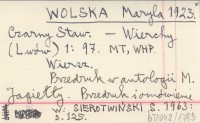 WOLSKA Maryla 1923.
Czarny Staw. — Wierchy
(Lwów) 1: 97. MT, WHP.
Wiersz.
Przedruk w antologii M.
Jagiełły. Przedruk i omówienie
w: SIEROTWIŃSKI S. 1963:
s. 125.